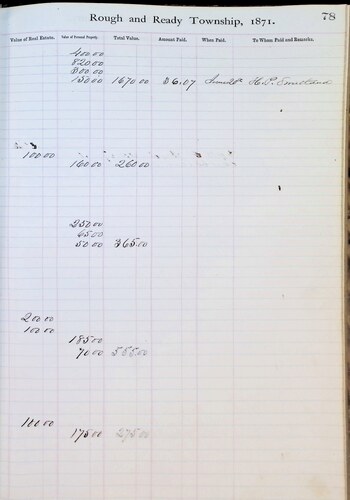 Rough and Ready Township, 1871. 78
Value of Real Estate. Value of Personal Property. Total Value. Amount Paid. When Paid. To Whom Paid and Remarks.
400.00
820.00
300.00
150.00 1670.00 36.07
100.00
160.00 260.00
250.00
65.00
50.00 365.00
200.00
100.00
185.00
70.00 555.00
100.00
175.00 275.00